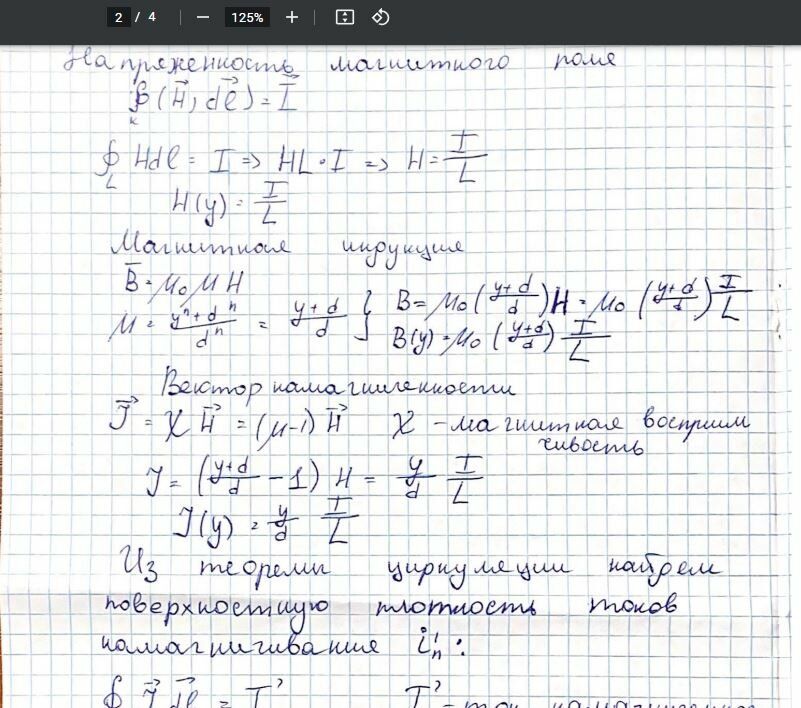 2 / 4 — 125% +
Напряженность магнитного поля
∮ₖ (H⃗, dl⃗) = I⃗
∮_L Hdl = I => HL · I => H = I/L
H(y) = I/L
Магнитная индукция
B̄ = μ₀ μ H
μ = (yⁿ + dⁿ)/dⁿ = (y + d)/d } B = μ₀ ((y + d)/d) H = μ₀ ((y + d)/d) I/L
B(y) = μ₀ ((y+d)/d) I/L
Вектор намагниченности
J⃗ = χ H⃗ = (μ-1) H⃗ χ - магнитная восприим
чивость
J = ((y+d)/d - 1) H = y/d I/L
J(y) = y/d I/L
Из теоремы циркуляции найдем
поверхностную плотность токов
намагничивание i'ₙ:
∮ J⃗ dl⃗ = I' I' - ток намагниченно